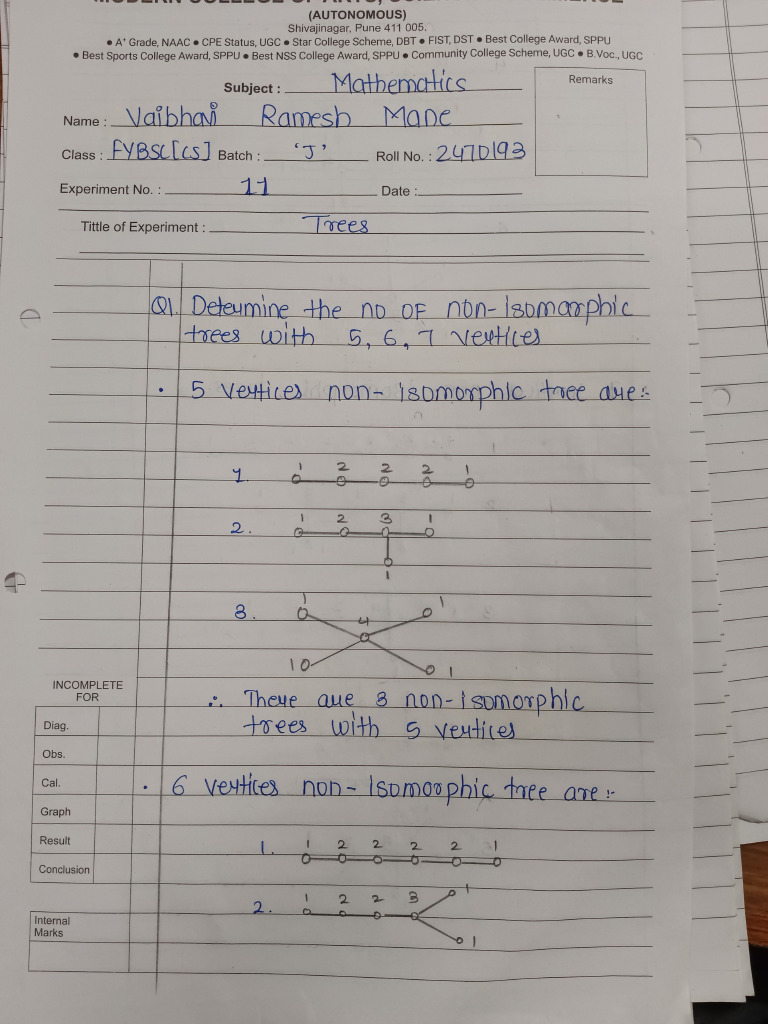 (AUTONOMOUS)
Shivajinagar, Pune 411 005.
• A+ Grade, NAAC • CPE Status, UGC • Star College Scheme, DBT • FIST, DST • Best College Award, SPPU
• Best Sports College Award, SPPU • Best NSS College Award, SPPU • Community College Scheme, UGC • B.Voc., UGC
Subject : Mathematics
Remarks
Name : Vaibhav Ramesh Mane
Class : FYBSC[CS] Batch : 'J' Roll No. : 2470193
Experiment No. : 11 Date :
Tittle of Experiment : Trees
Q1. Determine the no OF non-isomorphic
trees with 5, 6, 7 vertices
• 5 vertices non-isomorphic tree are:-
1. 1 2 2 2 1
2. 1 2 3 1
1
3. 1 4 1
1 1
∴ There are 3 non-isomorphic
trees with 5 vertices
INCOMPLETE
FOR
Diag.
Obs.
Cal.
Graph
Result
Conclusion
• 6 vertices non-isomorphic tree are:-
1. 1 2 2 2 2 1
2. 1 2 2 3 1
1
Internal
Marks